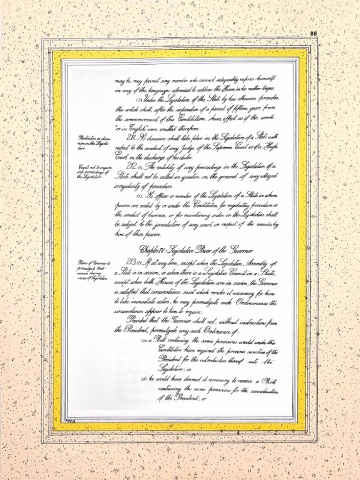 88
may be, may permit any member who cannot adequately express himself
in any of the languages aforesaid to address the House in his mother tongue.
(2) Unless the Legislature of the State by law otherwise provides,
this article shall, after the expiration of a period of fifteen years from
the commencement of this Constitution, have effect as if the words
"or in English" were omitted therefrom.
211. No discussion shall take place in the Legislature of a State with
respect to the conduct of any Judge of the Supreme Court or of a High
Court in the discharge of his duties.
212. (1) The validity of any proceedings in the Legislature of a
State shall not be called in question on the ground of any alleged
irregularity of procedure.
(2) No officer or member of the Legislature of a State in whom
powers are vested by or under this Constitution for regulating procedure or
the conduct of business, or for maintaining order, in the Legislature shall
be subject to the jurisdiction of any court in respect of the exercise by
him of those powers.
Chapter IV—Legislative Power of the Governor
213. (1) If at any time, except when the Legislative Assembly of
a State is in session, or where there is a Legislative Council in a State,
except when both Houses of the Legislature are in session, the Governor
is satisfied that circumstances exist which render it necessary for him
to take immediate action, he may promulgate such Ordinances as the
circumstances appear to him to require:
Provided that the Governor shall not, without instructions from
the President, promulgate any such Ordinance if—
(a) a Bill containing the same provisions would under this
Constitution have required the previous sanction of the
President for the introduction thereof into the
Legislature; or
(b) he would have deemed it necessary to reserve a Bill
containing the same provisions for the consideration
of the President; or